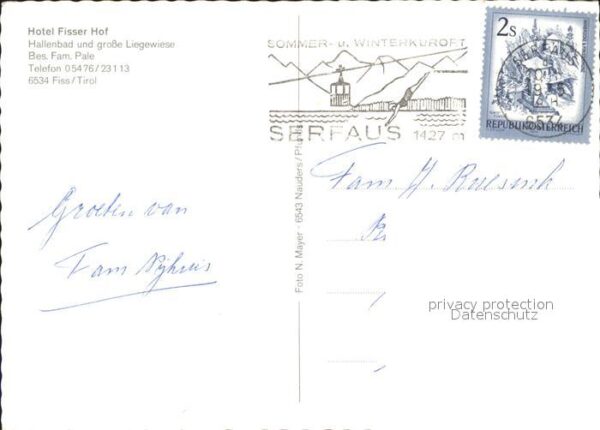 Hotel Fisser Hof
Hallenbad und große Liegewiese
Bes. Fam. Pale
Telefon 05476/23113
6534 Fiss/Tirol
SOMMER- u. WINTERKURORT
SERFAUS 1427 m
2S
REPUBLIK ÖSTERREICH
6534
Foto N. Mayer · 6543 Nauders/Pfunds
Groeten van
Fam Nijhuis
Fam. J.
privacy protection
Datenschutz